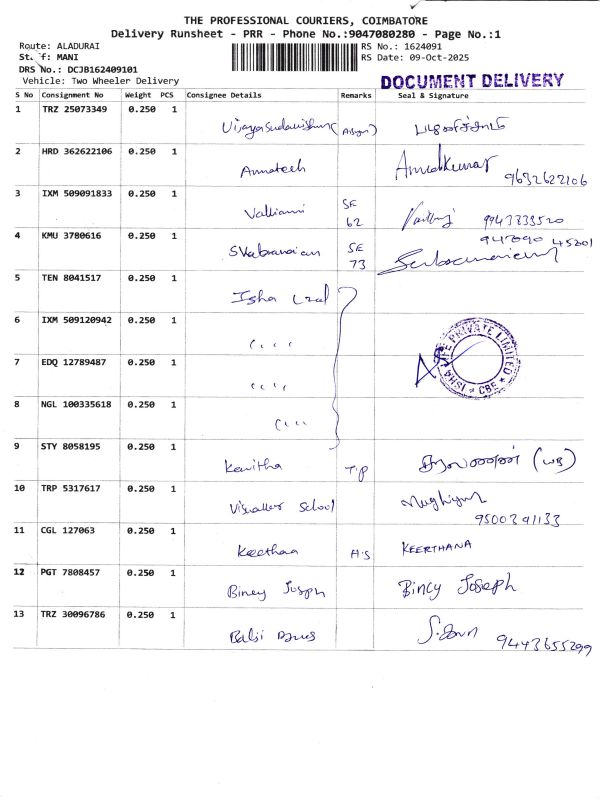 THE PROFESSIONAL COURIERS, COIMBATORE
Delivery Runsheet - PRR - Phone No.:9047080280 - Page No.:1
Route: ALADURAI
RS No.: 1624091
Staff: MANI
RS Date: 09-Oct-2025
DRS No.: DCJB162409101
Vehicle: Two Wheeler Delivery
DOCUMENT DELIVERY
S No Consignment No Weight PCS Consignee Details Remarks Seal & Signature
1 TRZ 25073349 0.250 1
2 HRD 362622106 0.250 1 Annatech
9632622106
3 IXM 509091833 0.250 1 Valliammi SE 62
9943333520
4 KMU 3780616 0.250 1 SE 73
5 TEN 8041517 0.250 1 Isha
6 IXM 509120942 0.250 1 " "
ISHA LIFE PRIVATE LIMITED * CBE *
7 EDQ 12789487 0.250 1 " "
8 NGL 100335618 0.250 1 " "
9 STY 8058195 0.250 1 Kavitha T.P
10 TRP 5317617 0.250 1 School
9500391133
11 CGL 127063 0.250 1 Keethaa H.S KEERTHANA
12 PGT 7808457 0.250 1 Bincy Joseph Bincy Joseph
13 TRZ 30096786 0.250 1
9443655299